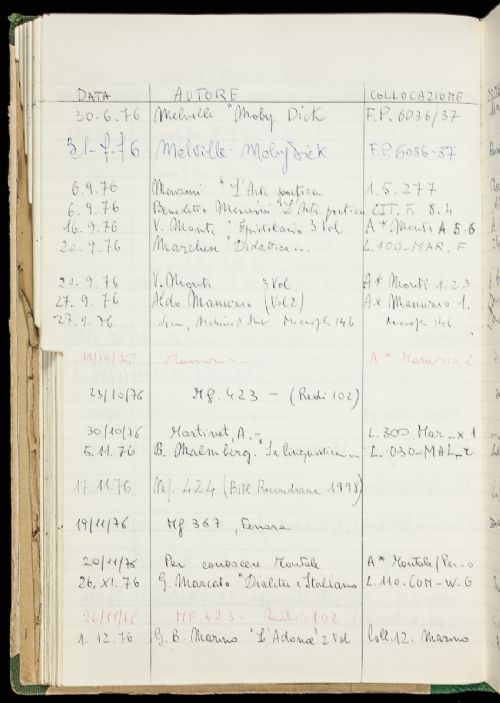 DATA AUTORE COLLOCAZIONE
30.6.76 Melville "Moby Dick F.P. 6036/37
31-7-76 Melville - Moby Dick F.P. 6036-37
6.9.76 Menzini "L'Arte poetica 1.5.277
6.9.76 Benedetto Menzini "L'Arte poetica CIT. F. 8.4
16.9.76 V. Monti "Epistolario 3 Vol A* Monti A 5.6
20.9.76 Marchese "Didattica... L.100-MAR. F
20.9.76 V. Monti 3 Vol A* Monti 1.2.3.
27.9.76 Aldo Manuzio (Vol 2) A* Manuzio 1.
27.9.76 Microfilm 146 Microfh 146
/10/76 Manuzio A* Manuzio, 2
23/10/76 Mf. 423 - (Redi 102)
30/10/76 Martinet, A. - L.300. Mar-x.1
5.11.76 B. Malmberg. "La linguistica - L. 030-MAL-
17.11.76 Mf. 424 (Bibl Riccardiana 1998)
19/11/76 Mf 367, Ferrara
20/11/76 Per conoscere Montale A* Montale/Per-0
26.XI.76 G. Marcato "Dialetto e Italiano L.110-COM-W-G
26/11/76 MF 423 - Redi 102
1.12.76 G.B. Marino "L'Adone" 2 Vol Coll.12. Marino